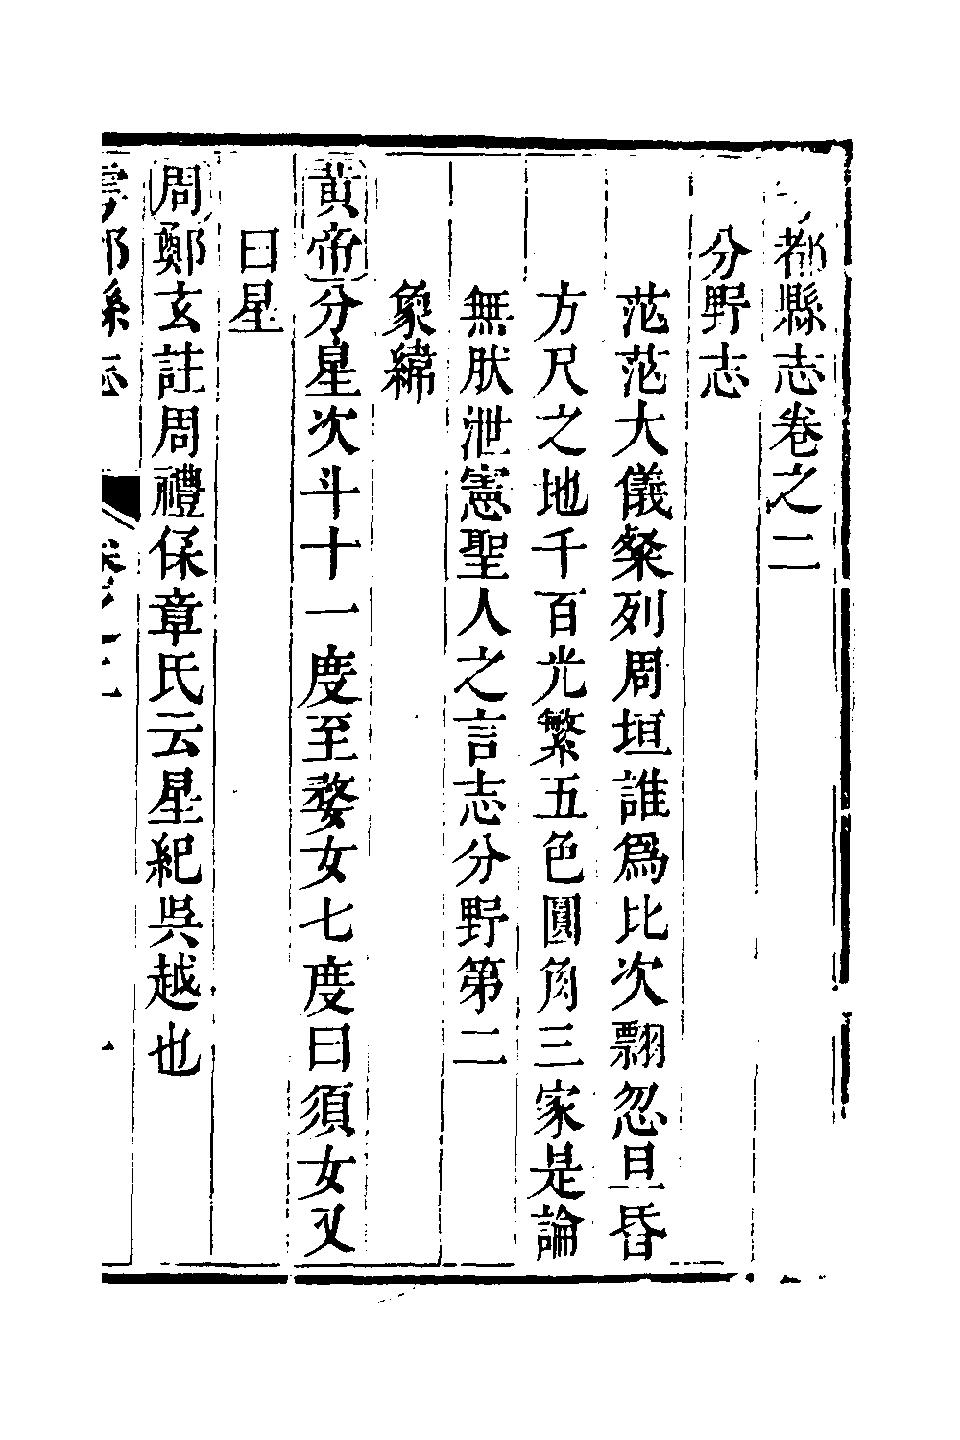 都縣志卷之二
分野志
茫茫大儀粲列周垣誰爲比次翾忽旦昏
方尺之地千百光繁五色圓角三家是論
無肰泄憲聖人之言志分野第二
象緯
黃帝分星次斗十一度至婺女七度曰須女又
曰星
周鄭玄註周禮保章氏云星紀吳越也
雩都縣志 卷之二